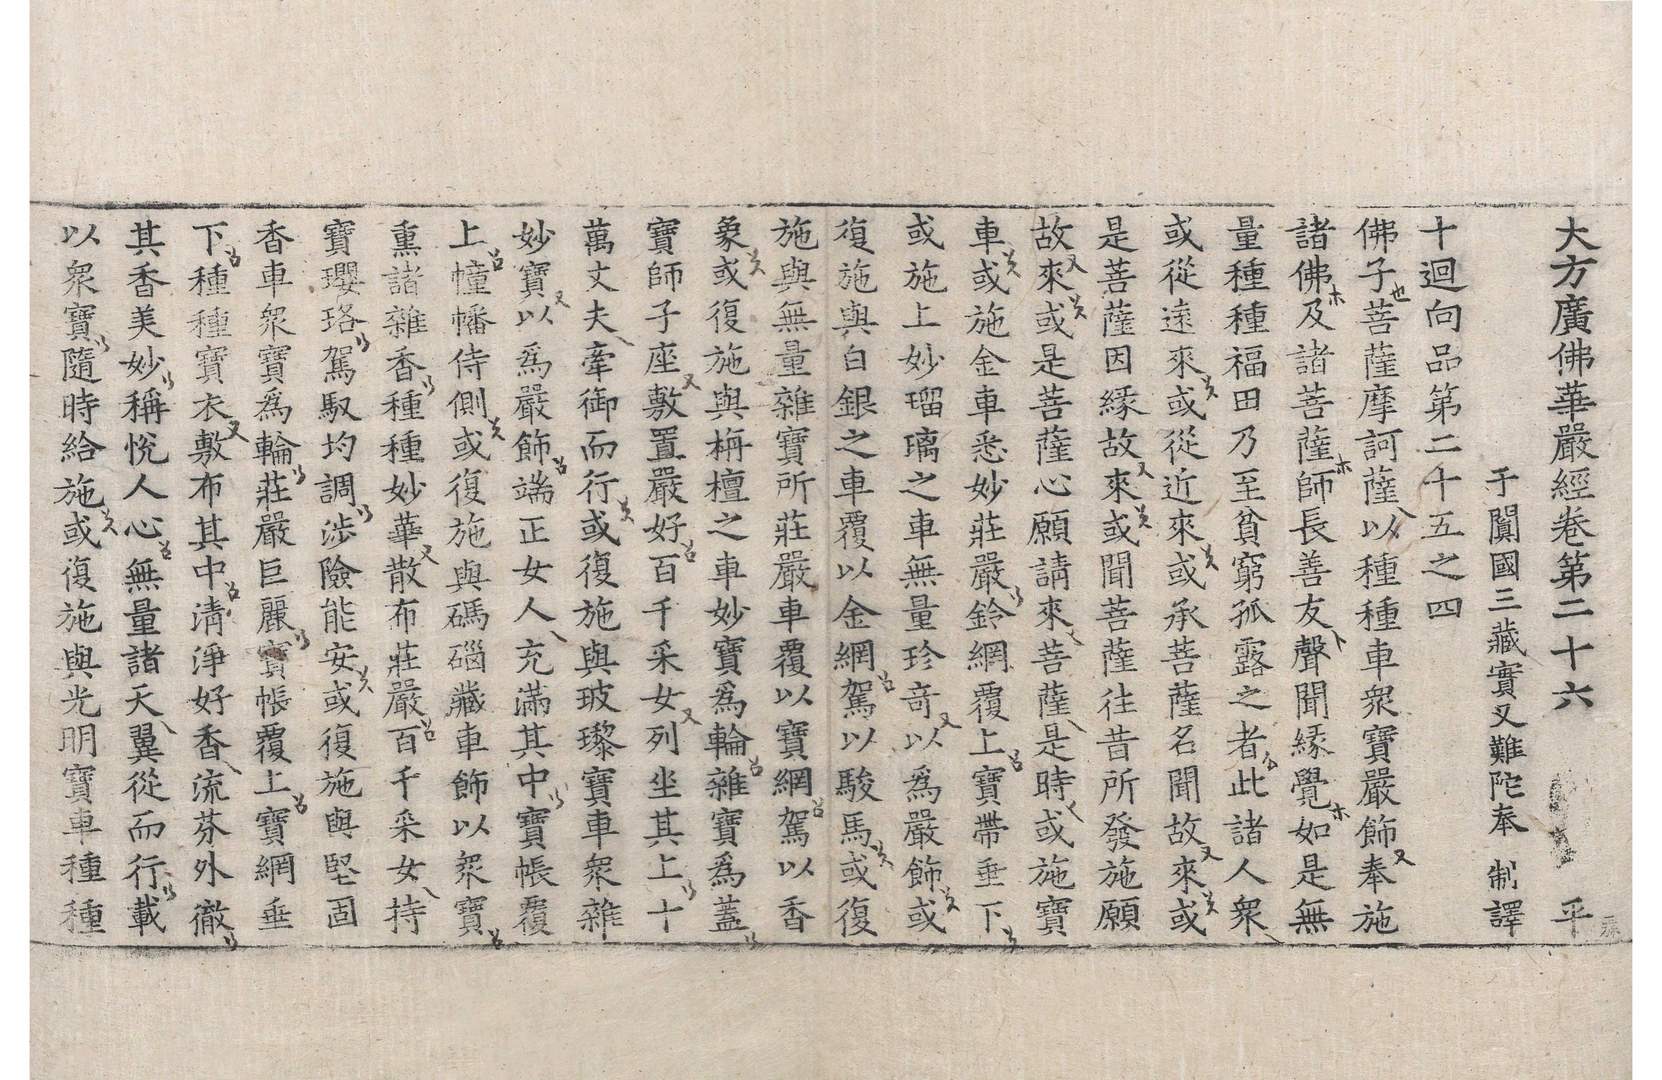 大方廣佛華嚴經卷第二十六 平
于闐國三藏實叉難陀奉 制譯
十迴向品第二十五之四
佛子菩薩摩訶薩以種種車衆寶嚴飾奉施
諸佛及諸菩薩師長善友聲聞緣覺如是無
量種種福田乃至貧窮孤露之者此諸人衆
或從遠來或從近來或承菩薩名聞故來或
是菩薩因緣故來或聞菩薩往昔所發施願
故來或是菩薩心願請來菩薩是時或施寶
車或施金車悉妙莊嚴鈴網覆上寶帶垂下
或施上妙瑠璃之車無量珍奇以爲嚴飾或
復施與白銀之車覆以金網駕以駿馬或復
施與無量雜寶所莊嚴車覆以寶網駕以香
象或復施與栴檀之車妙寶爲輪雜寶爲蓋
寶師子座敷置嚴好百千采女列坐其上十
萬丈夫牽御而行或復施與玻瓈寶車衆雜
妙寶以爲嚴飾端正女人充滿其中寶帳覆
上幢幡侍側或復施與碼碯藏車飾以衆寶
熏諸雜香種種妙華散布莊嚴百千采女持
寶瓔珞駕馭均調涉險能安或復施與堅固
香車衆寶爲輪莊嚴巨麗寶帳覆上寶網垂
下種種寶衣敷布其中清淨好香流芬外徹
其香美妙稱悅人心無量諸天翼從而行載
以衆寶隨時給施或復施與光明寶車種種